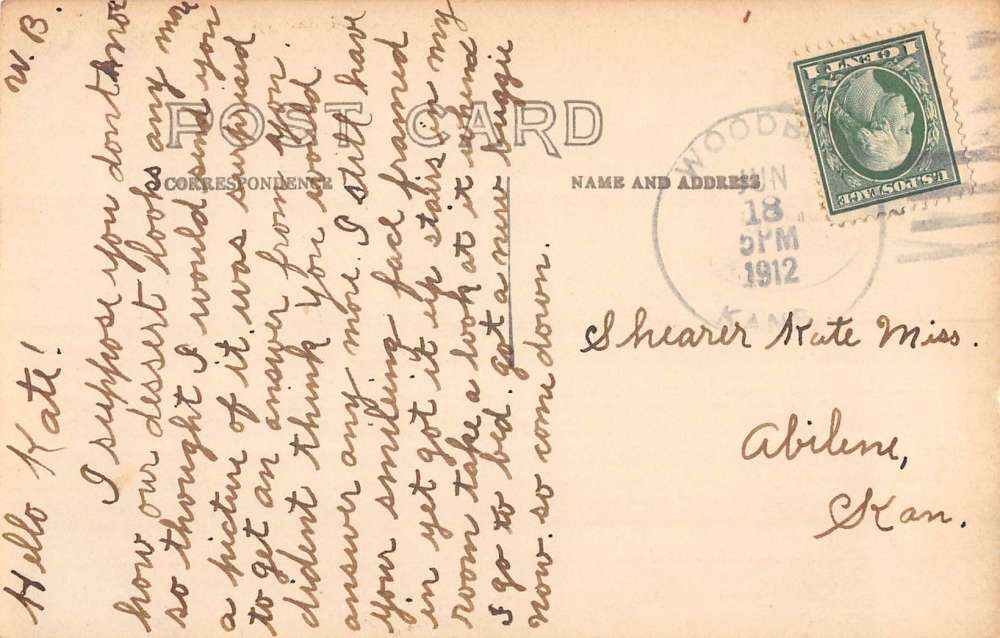 W. B.
Hello Kate!
I suppose you dont know
how our dessert looks any more
so thought I would send you
a picture of it. was suprised
to get an answer from you
dident think you would
answer any more. I still have
your smileing face framed
in yet got it up stairs in my
room take a look at it when
I go to bed. got a new buggie
now. so come down.
POST CARD
CORRESPONDENCE
NAME AND ADDRESS
JUN
18
5PM
1912
KANS
1 CENT 1
U.S. POSTAGE
Shearer Kate Miss.
Abilene,
Kan.